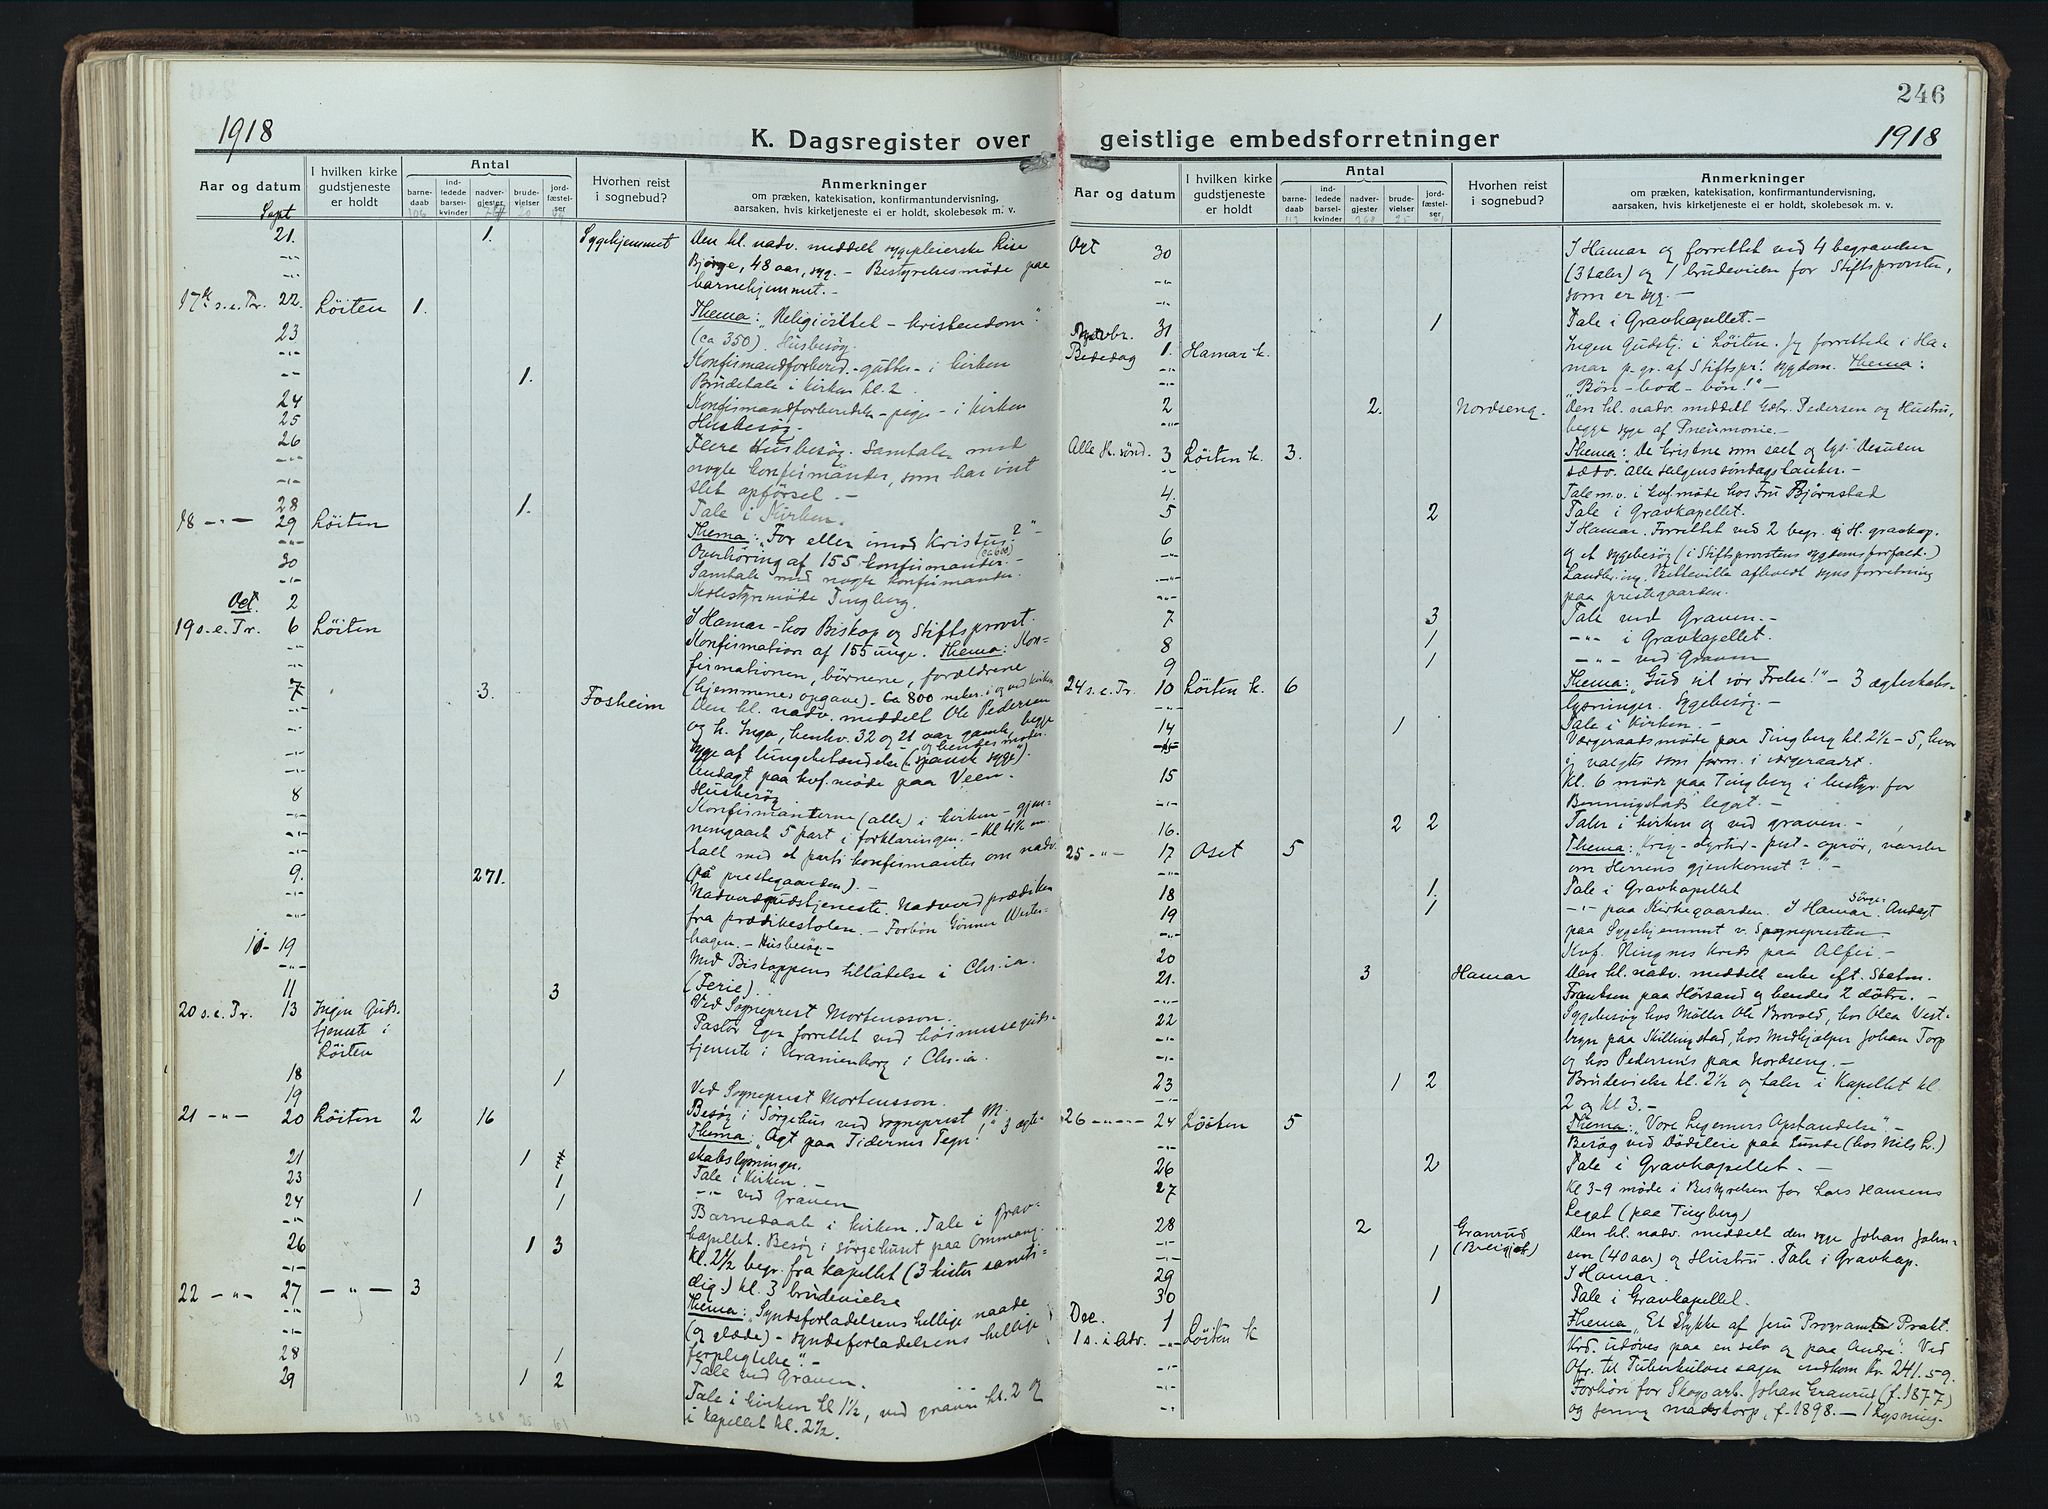 1918
K. Dagsregister over
Aar og datum
I hvilken kirke gudstjeneste er holdt
Antal
barne-daab
ind-ledede barsel-kvinder
nadver-gjester
brude-vielser
jord-fæstel-ser
Hvorhen reist i sognebud?
Anmerkninger
om præken, katekisation, konfirmantundervisning,
aarsaken, hvis kirketjeneste ei er holdt, skolebesøk m. v.
Sept
21. 1. Sygehjemmet Den hl. nadv. meddelt sygepleierske Lise
Bjørge, 48 aar, syg. – Bestyrelsesmøde paa
barnehjemmet. –
17de s.e.Tr. 22. Löiten 1. Thema: "Religiösitet – kristendom".
23 (ca 350). Husbesøg.
Konfirmandforbered. – gutter – i kirken
1. Brudetale i kirken kl. 2.
24 Konfirmandforberedelse – piger – i kirken
25 Husbesøg.
26 Flere Husbesøg. Samtale med
nogle konfirmander, som har övet
slet opførsel. –
28 1. Tale i Kirken.
18 –"– 29 Löiten Thema: "For eller imod Kristus?" – (ca 600)
Overhöring af 155 konfirmander. –
30 Samtale med nogle konfirmander.
Oct. 2 Skolestyremöde Tingberg.
19 s.e.Tr. 6 Löiten I Hamar – hos Biskop og Stiftsprovst.
Konfirmation af 155 unge. Thema: Kon-
firmationen, børnene, forældrene
(hjemmenes opgave). Ca 800 neker. i og ved kirken
7 3. Fosheim Den hl. nadv. meddelt Ole Pedersen
og h. Inga, henhv. 32 og 21 aar gamle, begge
syge af lungebetændelse ("spansk syge"). og hendes moder.
Andagt paa kvf. møde paa Veen.
8 Husbesøg
Konfirmanterne (alle) i kirken – gjen-
nemgaaet 5 part i forklaringen. – Kl 4½ sam-
tale med et parti konfirmanter om nadv.
9. 271. (på prestegaarden). –
Nadverdgudstjeneste. Nadverd prædiken
fra prædikestolen. – Forbön Gunner Wester-
hagen. – Husbesøg. –
10–19 Med Biskoppens tilladelse i Chr.ia.
(Ferie).
11 3 Ved Sogneprest Mortensson.
20 s.e.Tr. 13 Ingen Guds-
tjeneste i
Löiten Pastor Egen forrettet ved höimessegudst-
tjeneste i Uranienborg i Chr.ia.
18 1
19 Ved Sogneprest Mortensson.
21 –"– 20 Löiten 2 16 Besøg i Sørgehus ved sogneprest M.
Thema: "Agt paa Tidernes Tegn!" 3 ægte-
21 1 skabslysninger.
23 1 Tale i Kirken. –
24 1 1 –"– ved Graven
Barnedaab i kirken. Tale i grav-
26 1 3 kapellet. Besøg i sörgehuset paa Ommang.
Kl. 2½ begr. fra kapellet (3 kister samti-
dig) kl. 3 brudevielse
22 –"– 27 –"– 3 Thema: "Syndsforladelsens hellige naade
(og glæde) – syndsforladelsens hellige
28 1 forpligtelse". –
29 1 2 Tale ved Graven.
Tale i kirken kl 1½, ved graven kl. 2 og
i kapellet kl. 2½.
113 368 25 61
246
geistlige embedsforretninger
1918
Aar og datum
I hvilken kirke gudstjeneste er holdt
Antal
barne-daab
ind-ledede barsel-kvinder
nadver-gjester
brude-vielser
jord-fæstel-ser
Hvorhen reist i sognebud?
Anmerkninger
om præken, katekisation, konfirmantundervisning,
aarsaken, hvis kirketjeneste ei er holdt, skolebesøk m. v.
113 368 25 61
Oct 30 I Hamar og forrettet ved 4 begravelser
(3 taler) og 1 brudevielse for Stiftsprovsten,
som er syg. –
31 1 Tale i Gravkapellet. –
Novbr.
Bededag 1. Hamar k. Ingen Gudstj. i Löiten. Jeg forrettede i Ha-
mar p. gr. af Stiftspr.s sygdom. Thema:
"Bön – bod – bön!" –
2 2. Nordseng. Den hl. nadv. meddelt Gbr. Pedersen og Hustru,
begge syge af Pneumonie. –
Alle H. sønd. 3 Löiten k. 3. Thema: "De kristne som salt og lys". Desuden
sædv. Alle helgenssöndagstanker. –
4. Tale m.v. i kvf. møde hos Fru Bjørnstad
5 2 Tale i Gravkapellet.
6 I Hamar. Forrettet ved 2 begr. i H. gravkap.
og et sygebesøg (i Stiftsprovstens sygdomsforfald.)
Landbr. ing. Bitteville afholdt synsforretning
paa prestegaarden.
7 3 Tale ved Graven. –
8 1 –"– i Gravkapellet.
9 1 –"– ved Graven
24 s.e.Tr. 10 Löiten k. 6 Thema: "Gud til vor Frelse!" – 3 ægteskabs-
lysninger. Sygebesøg. –
14 1 Tale i Kirken. –
Værgeraadsmøde paa Tingberg kl. 2½ – 5, hvor
jeg valgtes som form. i værgeraadet.
15 Kl. 6 möde paa Tingberg i bestyr. for
Benningstads legat. –
16. 2 2 Taler i kirken og ved graven. –
25 –"– 17 Oset 5 Thema: "Krig – dyrtid – pest – oprör, varsler
om Herrens gjenkomst?" –
18 1. Tale i Gravkapellet
19 1 –"– paa Kirkegaarden. I Hamar. Sörge- Andagt
paa Sygehjemmet v. Sognepresten
20 Kvf. Ringnes kreds paa Alfei. –
21. 3 Hamar Den hl. nadv. meddelt enke eft. Skatm.
Frantsen paa Hørsand og hendes 2 dötre. –
22 Sygebesøg hos Møller Ole Brovold, hos Olea Vest-
byen paa Skillingstad, hos Medhjælper Johan Torp
og hos Pedersens paa Nordseng. –
23 1 2 Brudevielse kl. 2½ og taler i Kapellet kl.
2 og kl 3. –
26 –"–"– 24 Löiten 5 Thema: "Vore Legemers Opstandelse". –
Besøg ved Dødsleie paa Lunde (hos Nils L.)
26 2 Tale i Gravkapellet. –
27 Kl 3-9 möde i Bestyrelsen for Lars Hansens
Legat (paa Tingberg)
28 2 Granrud Den hl. nadv. meddelt den syge Johan John-
1 sen (40 aar) og Hustru. Tale i Gravkap.
29 I Hamar.
30 1 Tale i Gravkapellet.
Dec. 1
1 s. i Adv. Löiten k Thema "Et Stykke af Jesu Program: Prakt.
Krd. udöves paa en selv og paa Andre". Ved
Ofr. til Tuberkulosesagen indkom Kr. 241.59.
Forbön for Skogsarb. Johan Granrud (f. 1877)
og Jenny Madskorp, f. 1898. – 1 lysning.